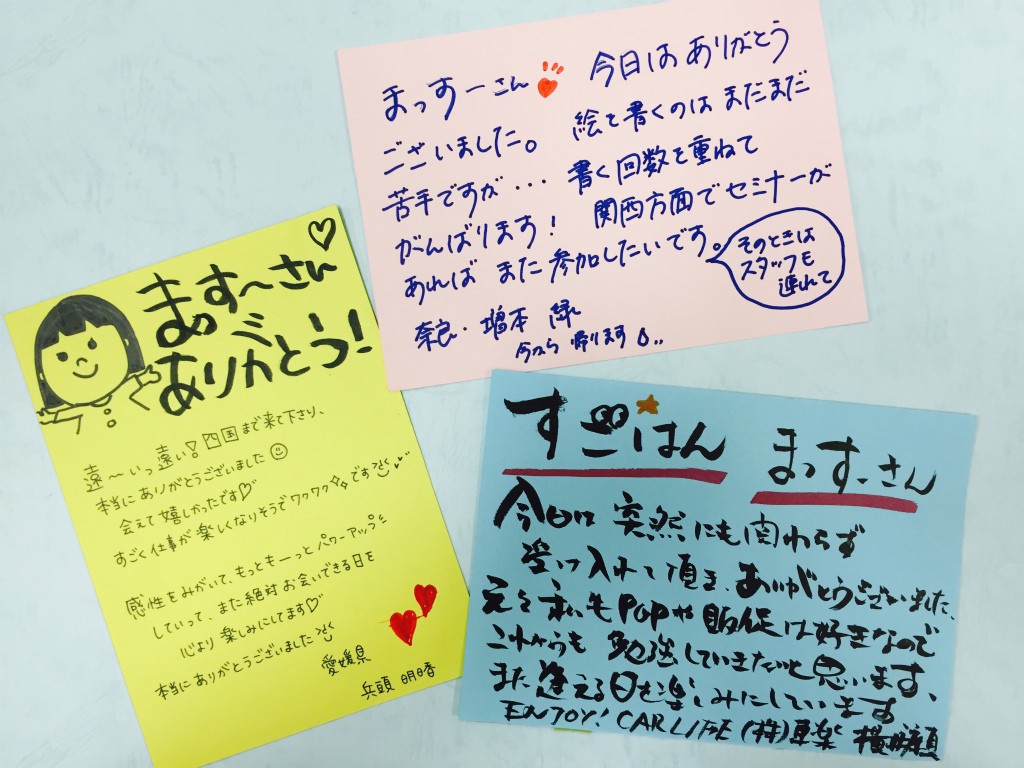 まっすーさん 今日はありがとう
ございました。 絵を書くのはまだまだ
苦手ですが・・・ 書く回数を重ねて
がんばります! 関西方面でセミナーが
あれば また参加したいです。
そのときは
スタッフも
連れて
奈良・増本 緑
今から 帰ります
まっす〜さん
ありがとう!
遠〜いっ遠い!四国まで来て下さり、
本当にありがとうございました
会えて嬉しかったです♡
すごく仕事が楽しくなりそうでワクワクです
感性をみがいて、もっともーっとパワーアップ
していって、また絶対お会いできる日を
心より楽しみにしてます♡
本当にありがとうございました
愛媛県
兵頭 明日香
すごはん まっすーさん
今日は 突然にも関わらず
受け入れて頂き、ありがとうございました、
元々私もPOPや販促は好きなので
これからも 勉強していきたいと思います、
また逢える日を楽しみにしています
ENJOY! CAR LIFE (株)車楽